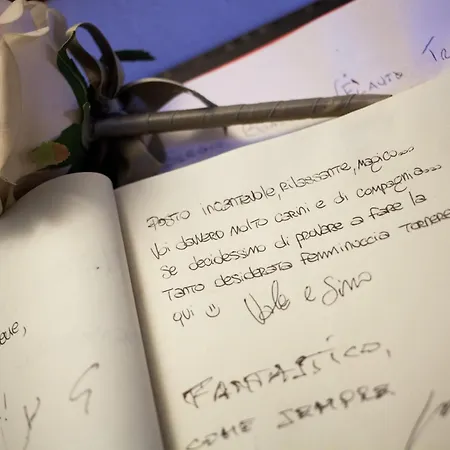 Posto incantevole, rilassante, magico....
Voi davvero molto carini e di compagnia...
Se decidessimo di provare a fare la
tanto desiderata femminuccia torneremo
qui ☺ Vale e Simo
FANTASTICO,
COME SEMPRE